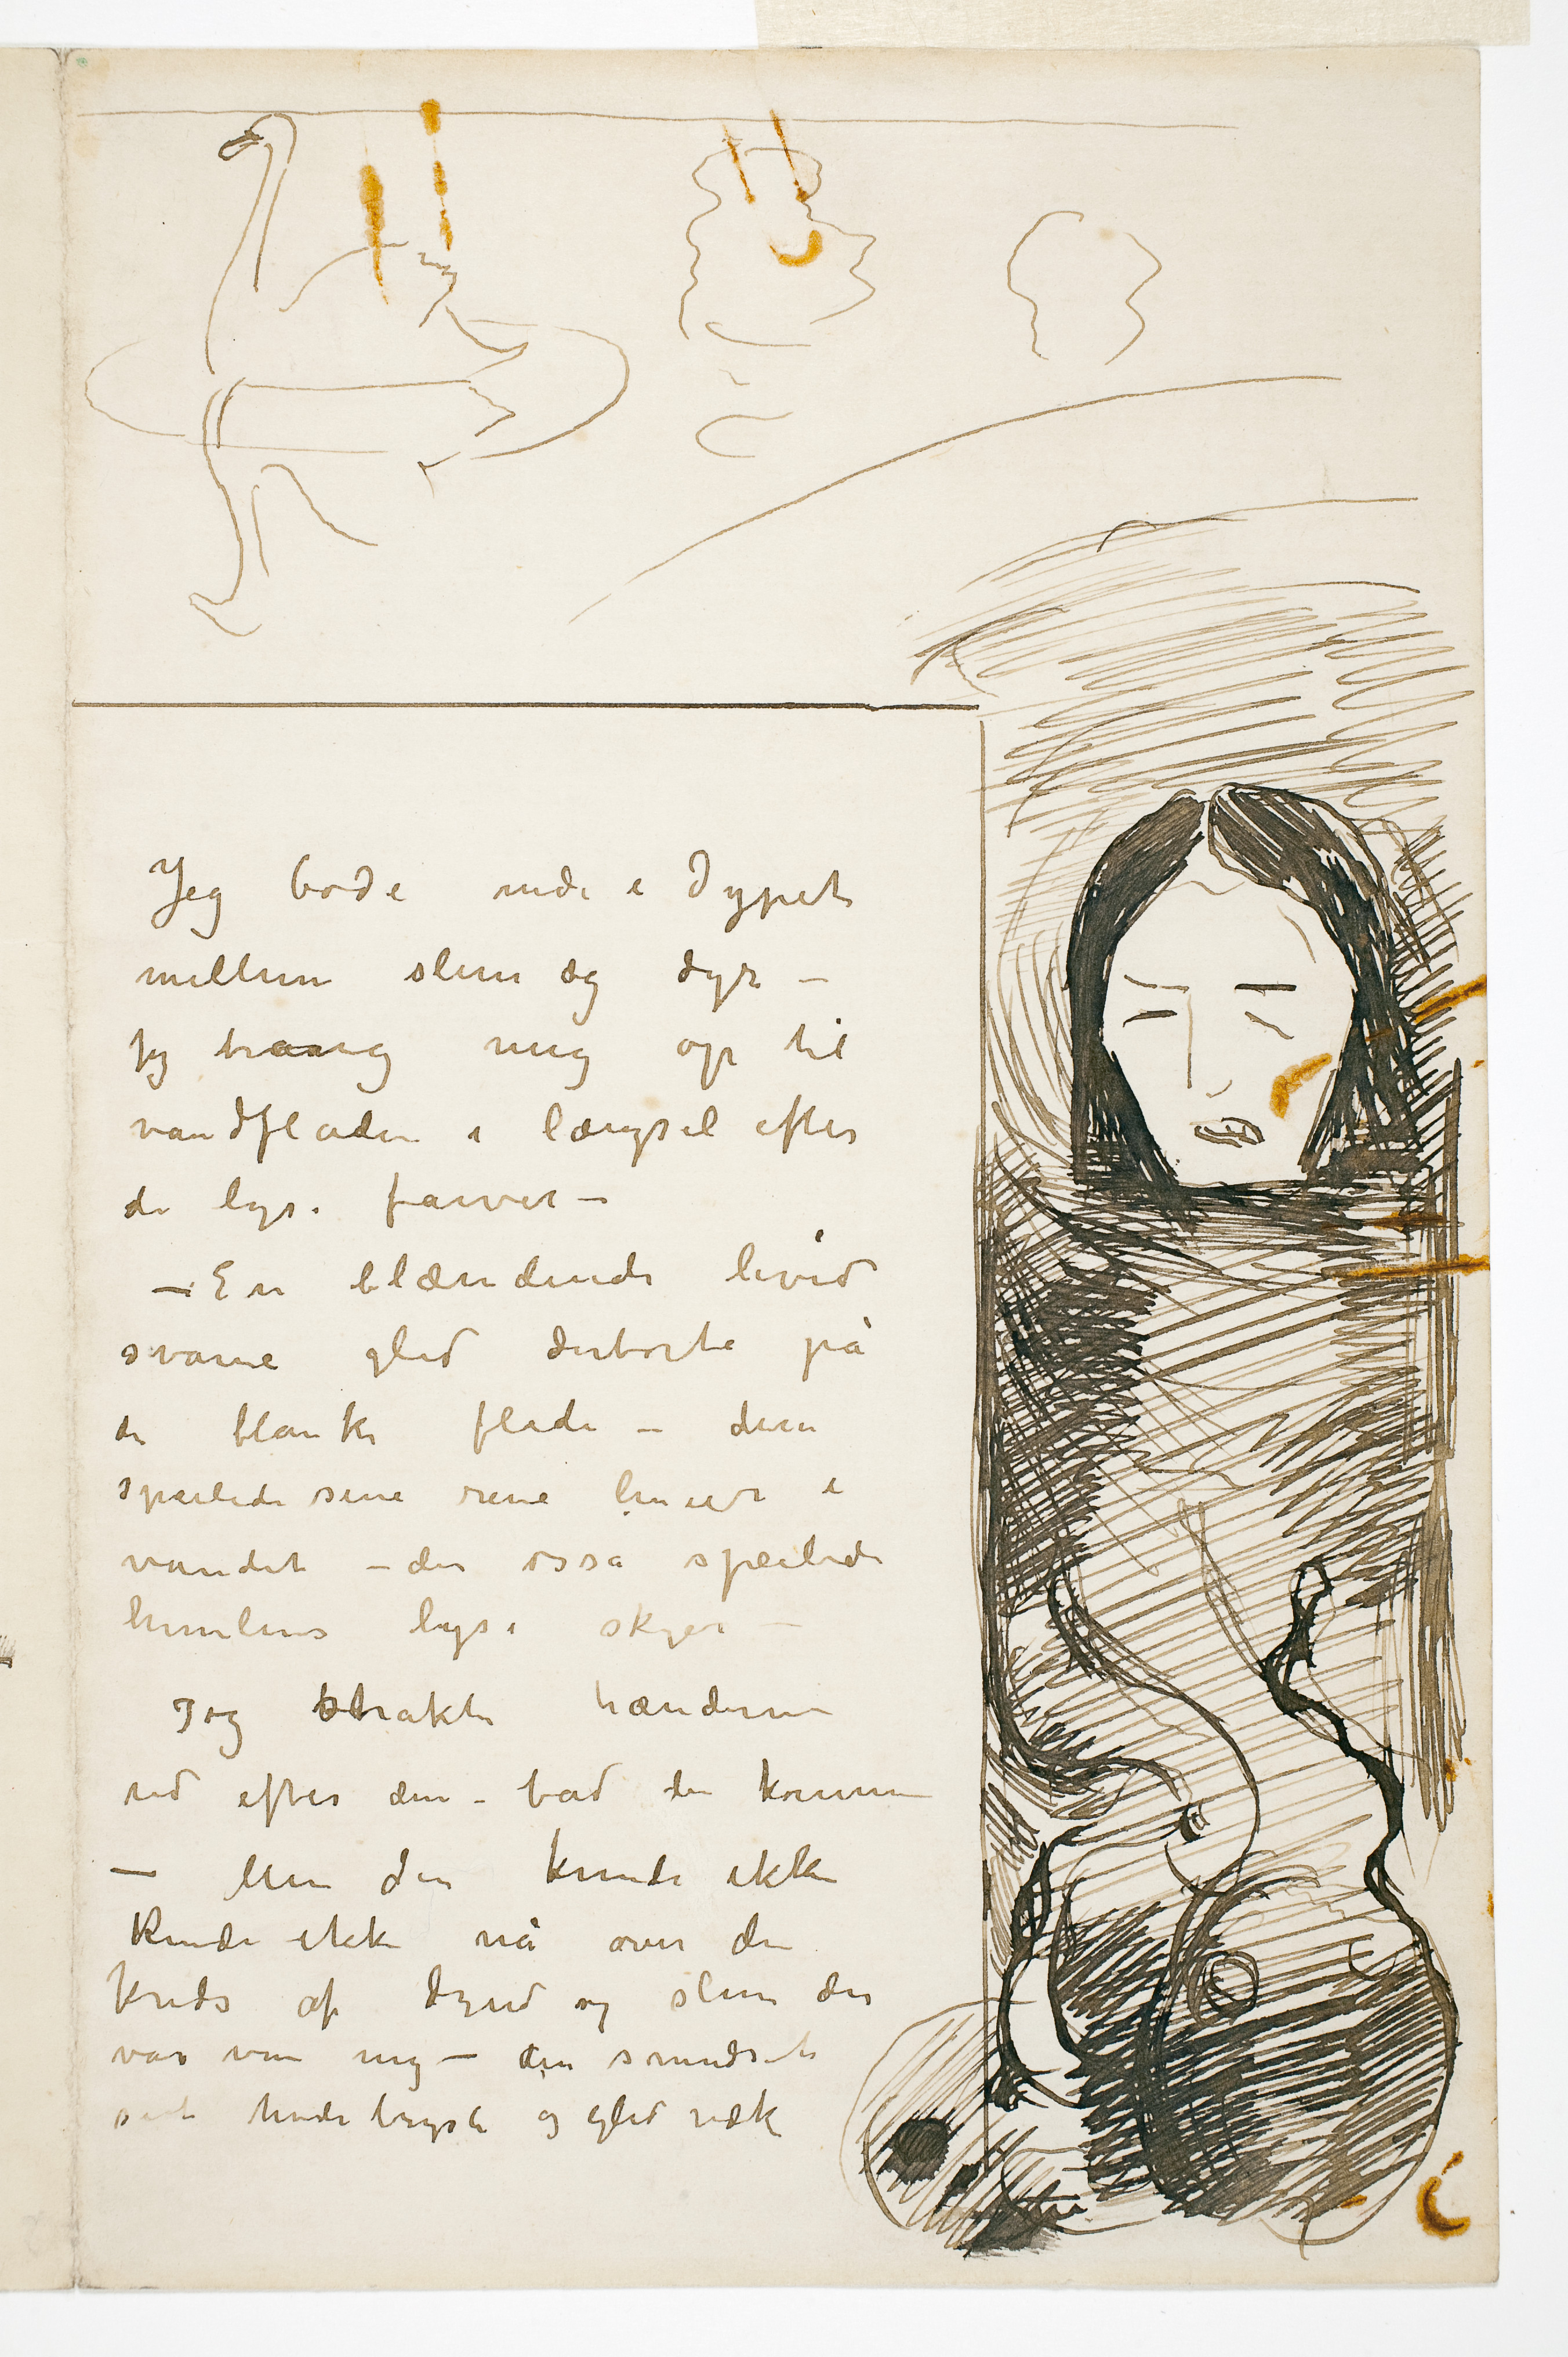 Jeg bode nede i dypet
mellem slim og dyr –
Jeg trang mig op til
vandfladen i længsel efter
de lyse farver –
– En blændende hvid
svane gled derborte på
de blanke flade – dens
speilede sine rene linier i
vandet – der osså speilede
himlens lyse skyer –
Jeg strakte hænderne
ud efter den – bad den komme
– Men den kunde ikke
Kunde ikke nå over den
kreds af dynd og slim der
var om mig – den smudset
sit hvide bryst og gled væk